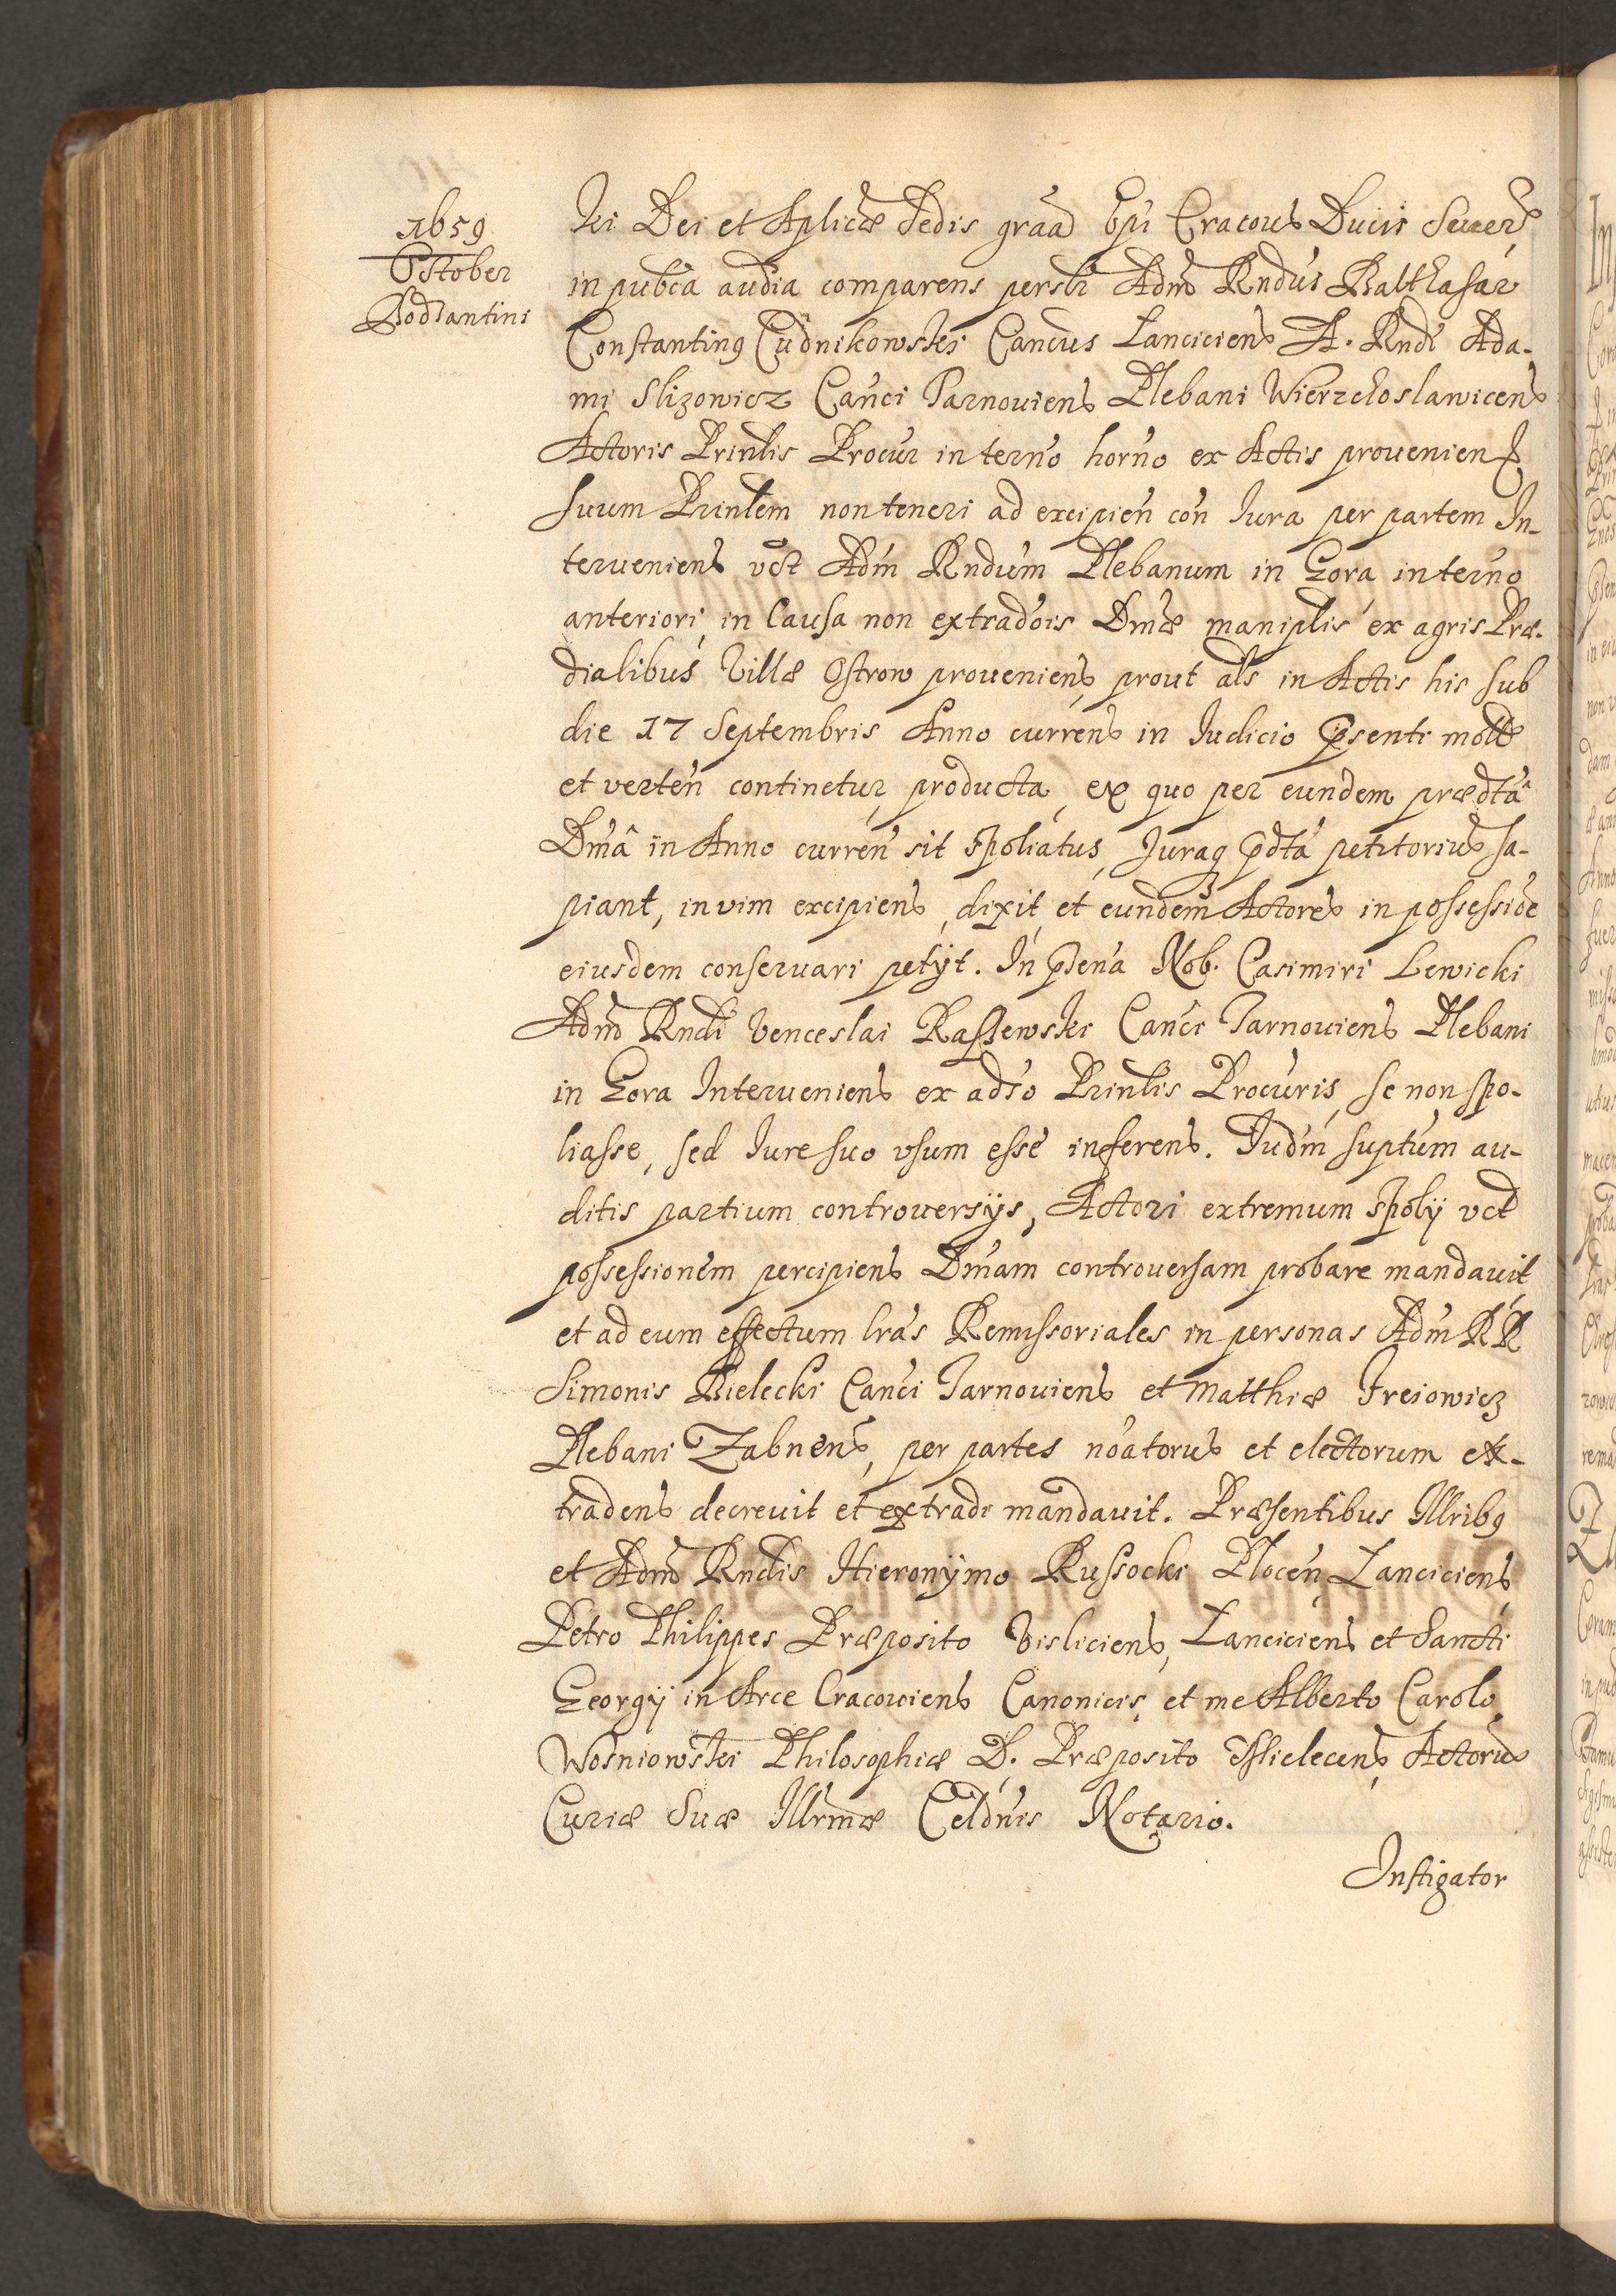 1659
October
Bodzantini
ki Dei et Aplicæ Sedis graa Epi Cracovs Ducis Sever
in pubca audia comparens persli Admo Rndus Balthasar
Constantinꝰ Cudnikowski Cancus Lanciciens A. Rndi Ada-
mi Slizowicz Canci Tarnoviens Plebani Wierzchoslawicens
Actoris Prinlis Procur in terno horno ex Actis provenien
suum Prinlem non teneri ad excipien con Iura per partem In-
terveniens vct Adm Rndum Plebanum in Gora in terno
anteriori in Causa non extradois Dmæ maniplis ex agris Præ-
dialibus Villæ Ostrow proveniens prout als in Actis his sub
die 17 Septembris Anno currens in Iudicio pnsenti
et verten continetur producta, ex quo per eundem prædta
Dmâ in Anno curren sit spoliatus, Iuraq pdta petitorius sa-
piant, in vim excipiens, dixit, et eundem Actores in possessioe
eiusdem conservari petÿt. In psena Nob. Casimiri Lewicki
Admo Rndi Venceslai Raszewski Canci Tarnoviens Plebani
in Gora Interveniens ex adso Prinlis Procuris, se non spo-
liasse, sed Iure suo usum esse inferens. Iudm suptum au-
ditis partium controversÿs, Actori extremum spolÿ vct
possessionem percipiens Dmam controversam probare mandavit
et ad eum effectum lras Remissoriales in personas Adm RR
Simonis Bielecki Canci Tarnoviens et Matthiæ Freiowicz
Plebani Zabnens, per partes noatorus et electorum ex-
tradens decrevit et extradi mandavit. Præsentibus Illribꝰ
et Admo Rndis Hieronÿmo Russocki Plocen Lanciciens,
Petro Philippes Præposito Visliciens, Lanciciens et Sancti
Georgÿ in Arce Cracoviens Canonicis, et me Alberto Carolo
Wosniowski Philosophiæ D. Præposito Mielecens Actorus
Curiæ Suæ Illrmæ Celdnis Notario.
Instigator